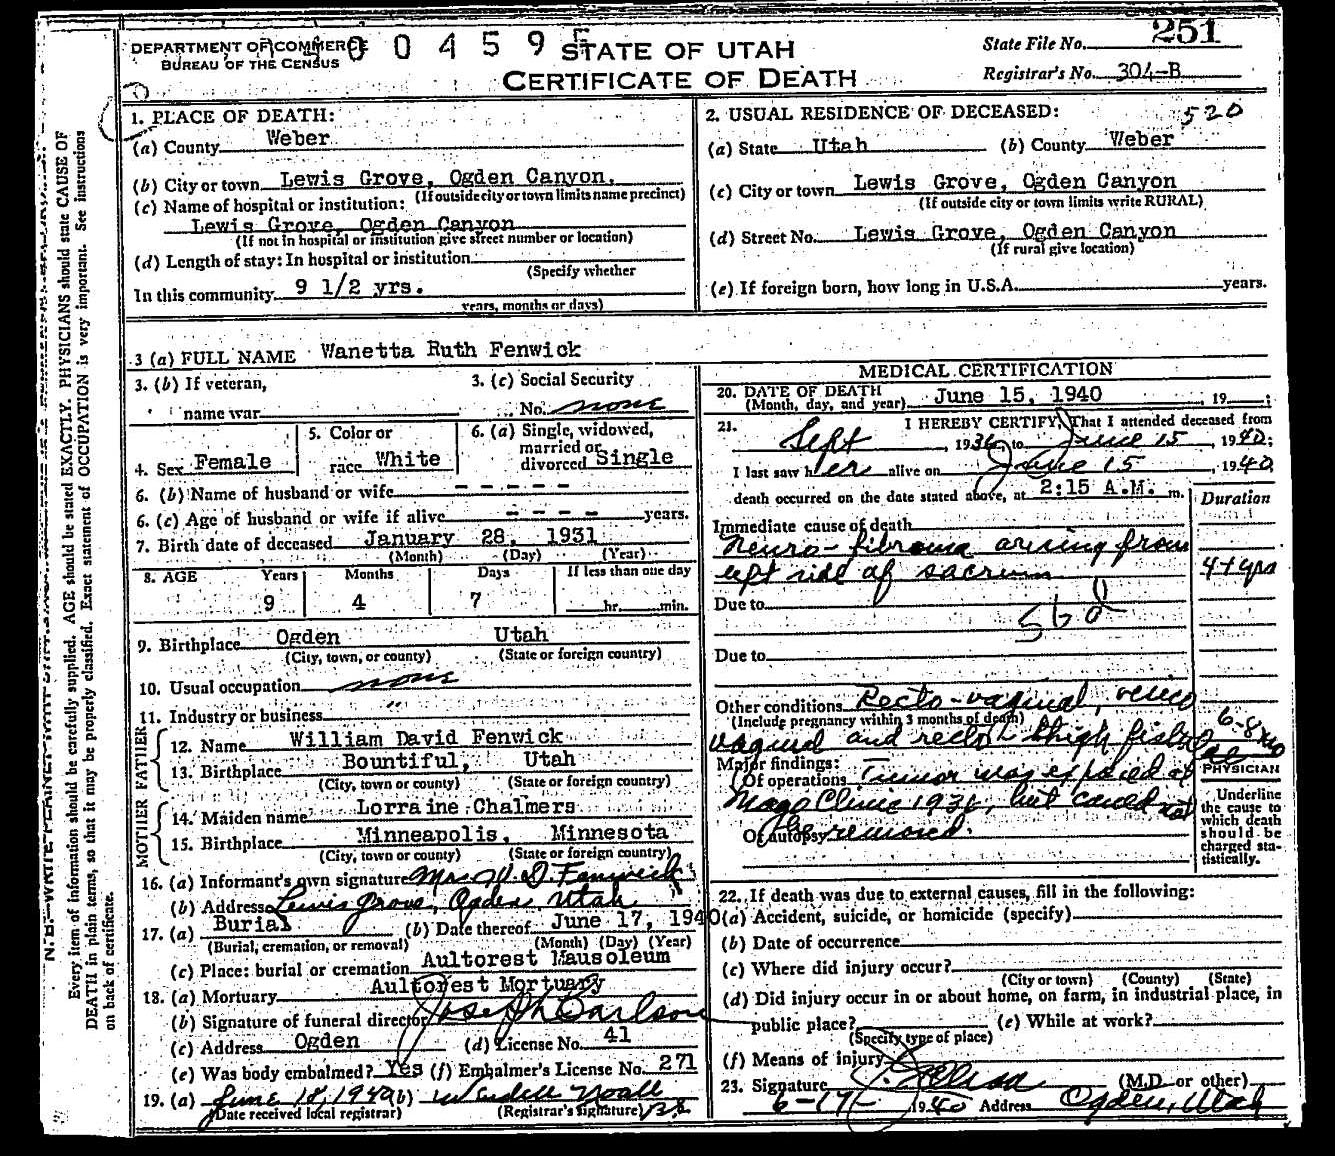 DEPARTMENT OF COMMERCE
BUREAU OF THE CENSUS
0 0 4 5 9
STATE OF UTAH
CERTIFICATE OF DEATH
State File No. 251
Registrar's No. 304-B
1. PLACE OF DEATH:
(a) County Weber
(b) City or town Lewis Grove, Ogden Canyon.
(If outside city or town limits name precinct)
(c) Name of hospital or institution:
Lewis Grove, Ogden Canyon
(If not in hospital or institution give street number or location)
(d) Length of stay: In hospital or institution
(Specify whether
In this community 9 1/2 yrs.
years, months or days)
2. USUAL RESIDENCE OF DECEASED: 520
(a) State Utah (b) County Weber
(c) City or town Lewis Grove, Ogden Canyon
(If outside city or town limits write RURAL)
(d) Street No. Lewis Grove, Ogden Canyon
(If rural give location)
(e) If foreign born, how long in U.S.A. years.
3 (a) FULL NAME Wanetta Ruth Fenwick
3. (b) If veteran,
name war
3. (c) Social Security
No. none
4. Sex Female
5. Color or
race White
6. (a) Single, widowed,
married or
divorced Single
6. (b) Name of husband or wife - - - - -
6. (c) Age of husband or wife if alive - - - - years.
7. Birth date of deceased January 28, 1931
(Month) (Day) (Year)
8. AGE Years Months Days If less than one day
9 4 7 hr. min.
9. Birthplace Ogden Utah
(City, town, or county) (State or foreign country)
10. Usual occupation none
11. Industry or business "
FATHER
12. Name William David Fenwick
13. Birthplace Bountiful, Utah
(City, town or county) (State or foreign country)
MOTHER
14. Maiden name Lorraine Chalmers
15. Birthplace Minneapolis, Minnesota
(City, town or county) (State or foreign country)
16. (a) Informant's own signature Mrs. W. D. Fenwick
(b) Address Lewis Grove, Ogden, Utah
17. (a) Burial (b) Date thereof June 17, 1940
(Burial, cremation, or removal) (Month) (Day) (Year)
(c) Place: burial or cremation Aultorest Mausoleum
18. (a) Mortuary Aultorest Mortuary
(b) Signature of funeral director Joseph Carlson
(c) Address Ogden (d) License No. 41
(e) Was body embalmed? Yes (f) Embalmer's License No. 271
19. (a) June 18, 1940 (b) Wardell Noall
(Date received local registrar) (Registrar's signature)
MEDICAL CERTIFICATION
20. DATE OF DEATH
(Month, day, and year) June 15, 1940, 19 ;
21. I HEREBY CERTIFY, That I attended deceased from
Sept, 1936, to June 15, 1940;
I last saw her alive on June 15, 1940,
death occurred on the date stated above, at 2:15 A.M. m.
Duration
Immediate cause of death
Neuro-fibroma arising from
left side of sacrum 4+ yrs
Due to
56d
Due to
Other conditions Recto-vaginal, vesico
(Include pregnancy within 3 months of death)
vaginal and recto thigh fistulae 6-8 mo
Major findings:
Of operations Tumor was exposed at
Mayo Clinic 1936, but could not
Of autopsy be removed.
PHYSICIAN
Underline
the cause to
which death
should be
charged sta-
tistically.
22. If death was due to external causes, fill in the following:
(a) Accident, suicide, or homicide (specify)
(b) Date of occurrence
(c) Where did injury occur?
(City or town) (County) (State)
(d) Did injury occur in or about home, on farm, in industrial place, in
public place? (e) While at work?
(Specify type of place)
(f) Means of injury
23. Signature (M.D. or other)
6-17- 1940 Address Ogden, Utah
Every item of information should be carefully supplied. AGE should be stated EXACTLY. PHYSICIANS should state CAUSE OF
DEATH in plain terms, so that it may be properly classified. Exact statement of OCCUPATION is very important. See instructions
on back of certificate.